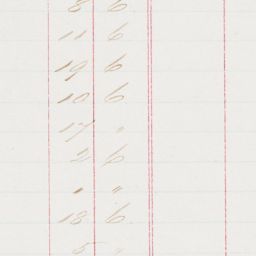 8 6
11 6
19 6
10 6
17 "
2 6
" "
18 6
5 "